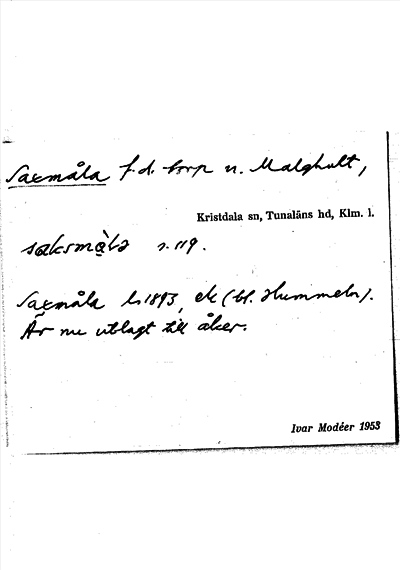 Saxmåla f.d. torp u. Malghult,
Kristdala sn, Tunaläns hd, Klm. l.
saksmà̱lа s. 119.
Saxmåla hs 1893, ek (bl. Hummeln).
Är nu utlagt till åker.
Ivar Modéer 1953